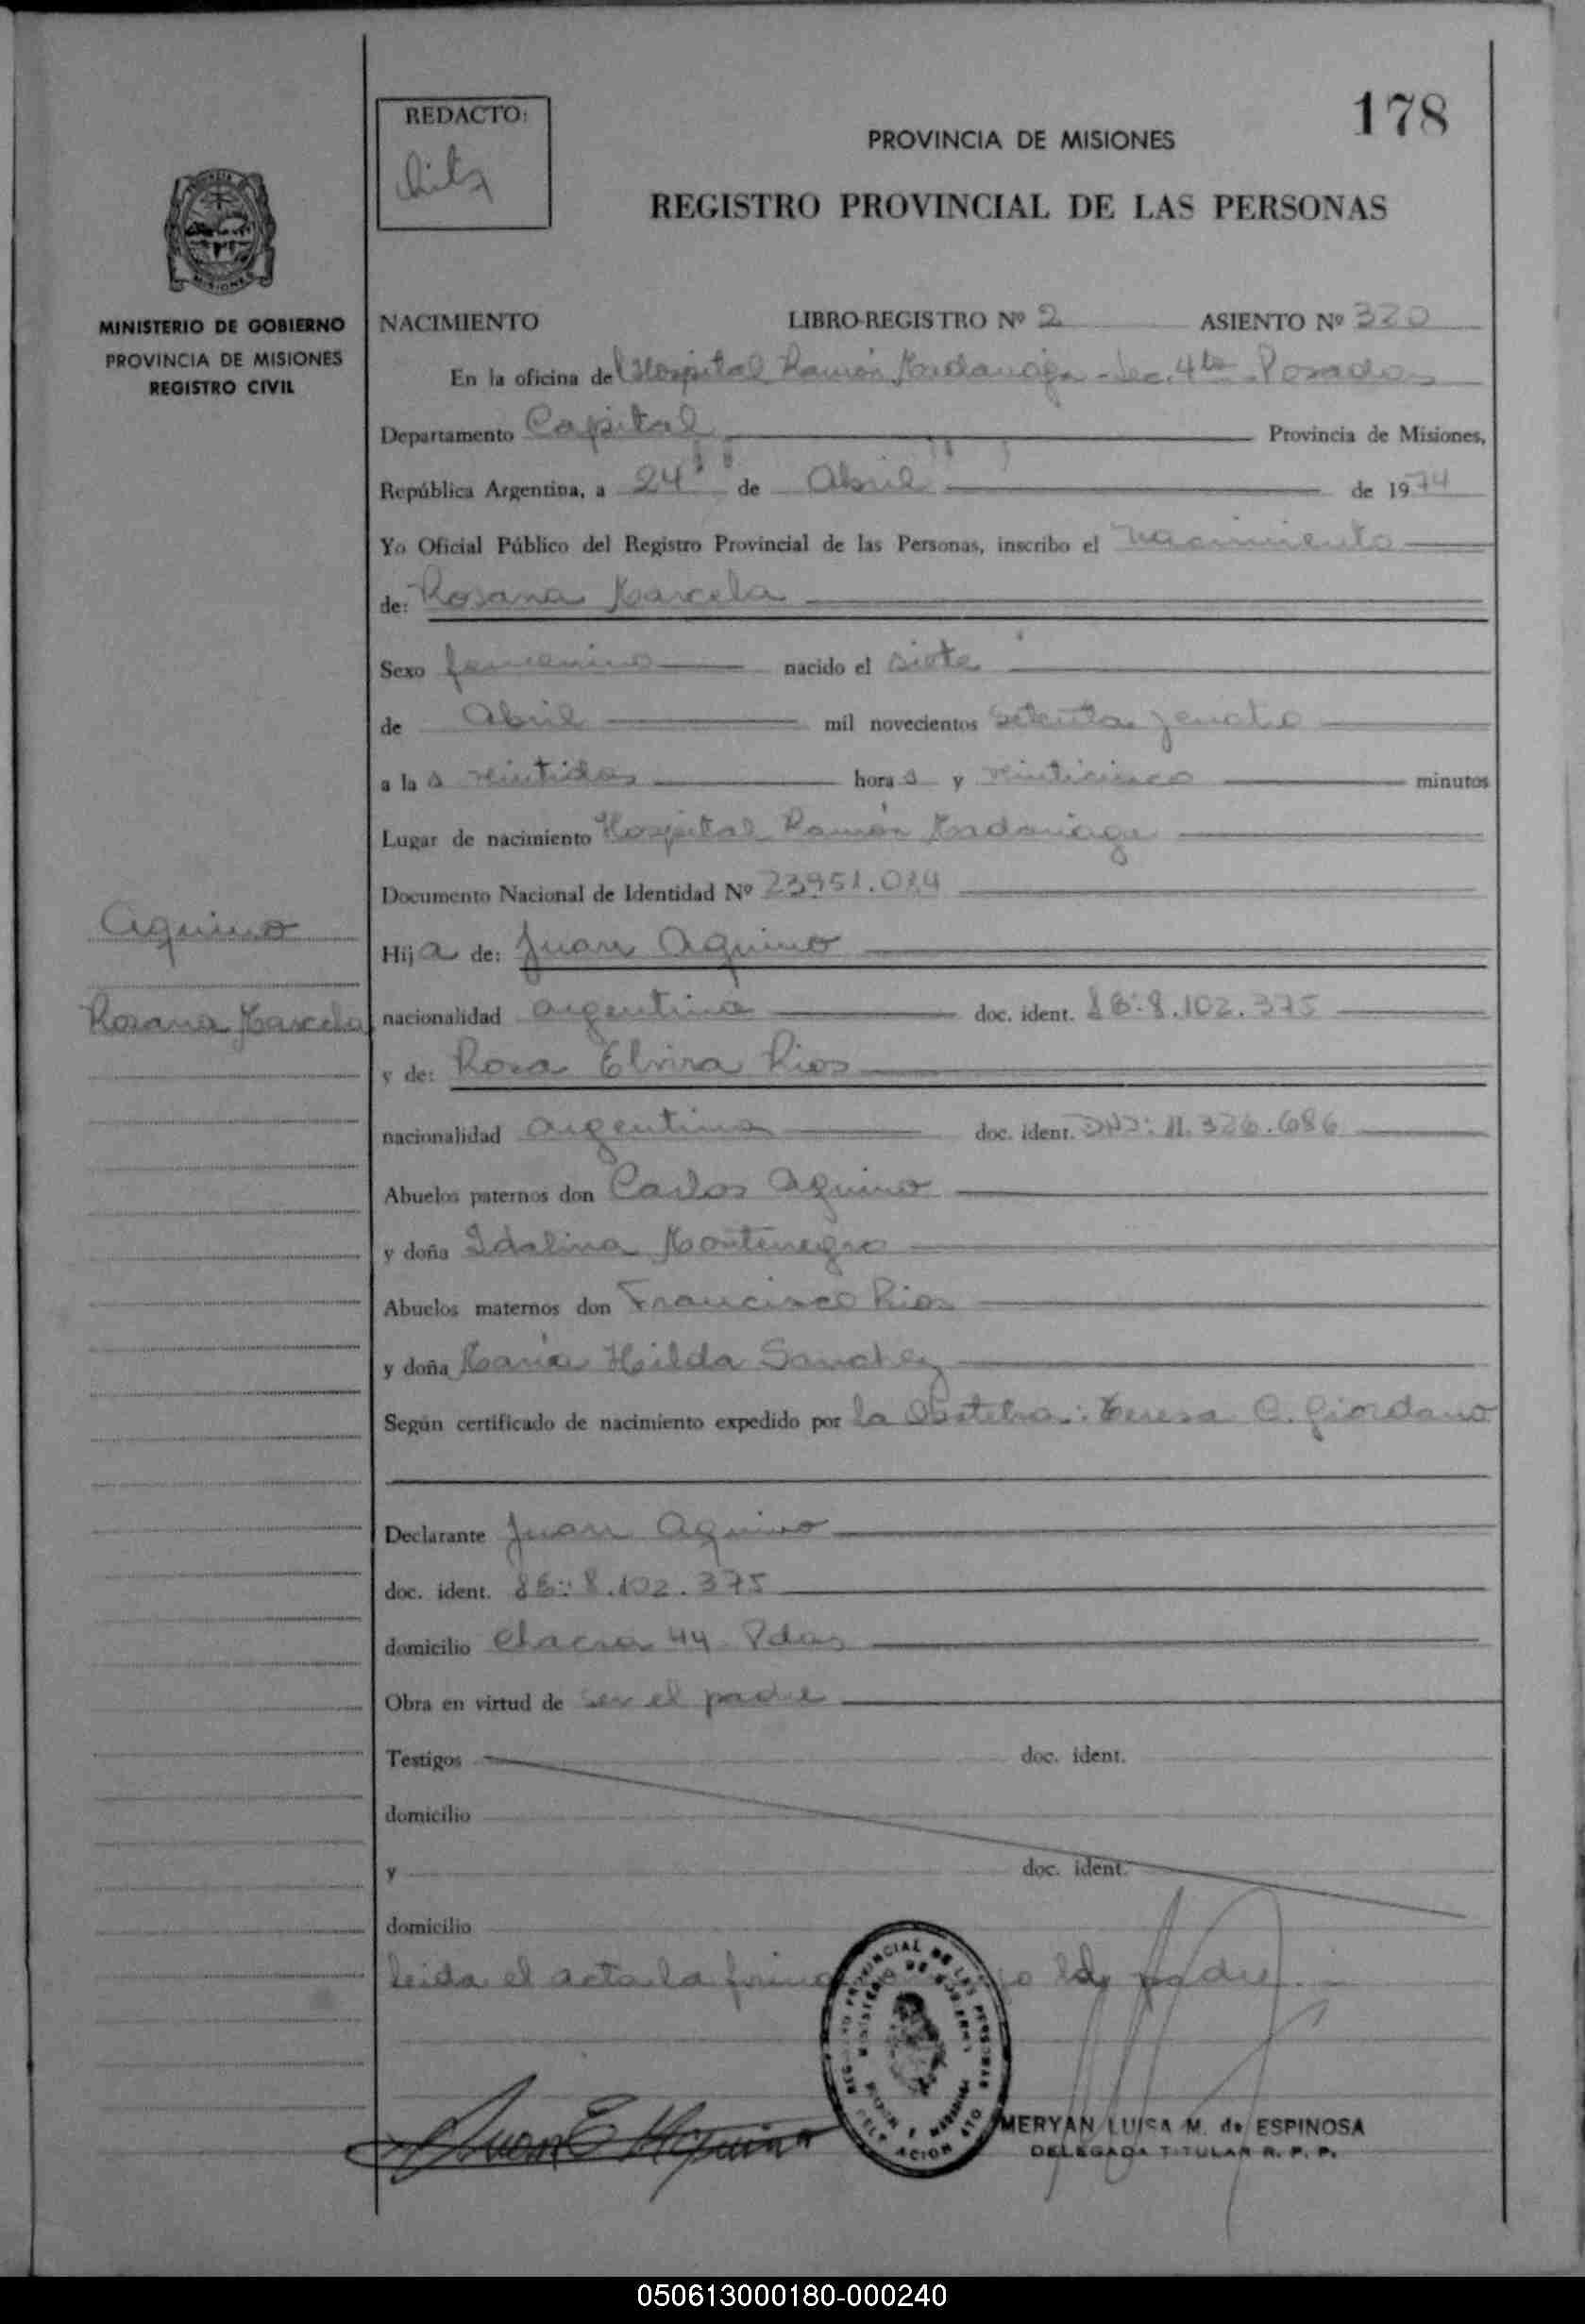 178
REDACTO:
PROVINCIA DE MISIONES
REGISTRO PROVINCIAL DE LAS PERSONAS
MISIONES
MINISTERIO DE GOBIERNO
PROVINCIA DE MISIONES
REGISTRO CIVIL
NACIMIENTO LIBRO-REGISTRO Nº 2 ASIENTO Nº 320
En la oficina del Hospital Ramón Madariaga - Sec. 4ta Posadas
Departamento Capital Provincia de Misiones,
República Argentina, a 24 de Abril de 1974
Yo Oficial Público del Registro Provincial de las Personas, inscribo el nacimiento
de: Rosana Marcela
Sexo femenino nacido el siete
de Abril mil novecientos setenta y cuatro
a la s veintidos hora s y veinticinco minutos
Lugar de nacimiento Hospital Ramón Madariaga
Documento Nacional de Identidad Nº 23951.034
Aquino
Rosana Marcela
Hij a de: Juan Aquino
nacionalidad argentina doc. ident. LE: 8.102.375
y de: Rosa Elvira Rios
nacionalidad argentina doc. ident. DNI: 11.326.686
Abuelos paternos don Carlos Aquino
y doña Idalina Montenegro
Abuelos maternos don Francisco Rios
y doña María Hilda Sanchez
Según certificado de nacimiento expedido por la Obstetra: Teresa C. Giordano
Declarante Juan Aquino
doc. ident. LE: 8.102.375
domicilio Chacra 44 Pdas
Obra en virtud de ser el padre
Testigos doc. ident.
domicilio
y doc. ident.
domicilio
Leida el acta la firma el padre
Juan E Aquino
MERYAN LUISA M. de ESPINOSA
DELEGADA TITULAR R. P. P.
050613000180-000240